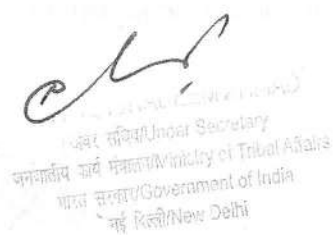 सचिव/Under Secretary
जनजातीय कार्य मंत्रालय/Ministry of Tribal Affairs
भारत सरकार/Government of India
नई दिल्ली/New Delhi